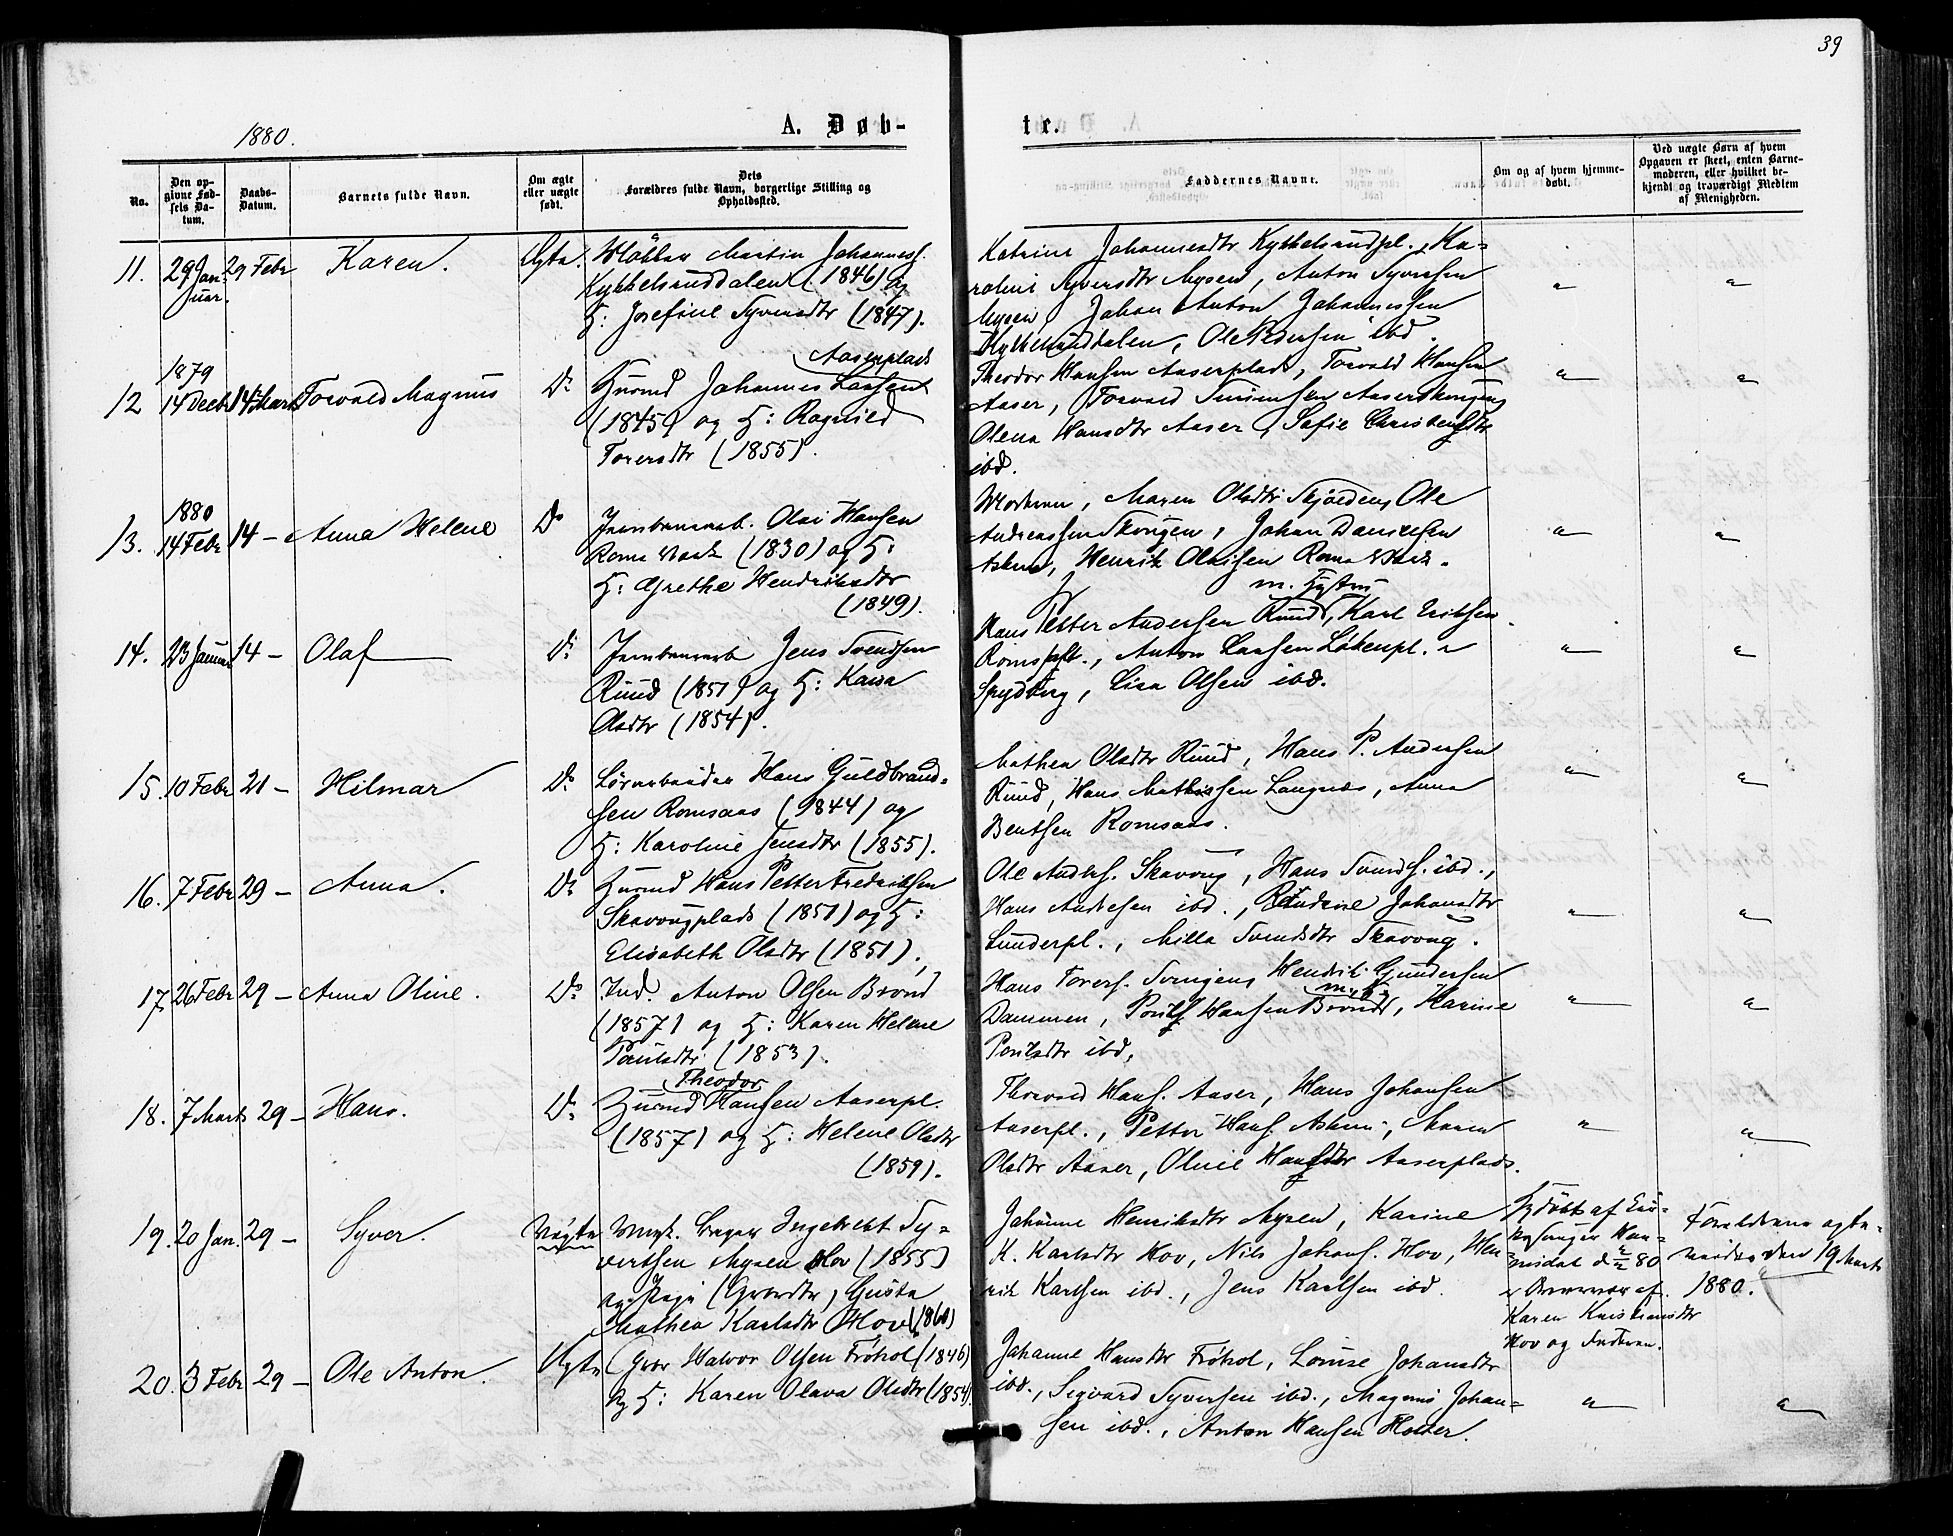 39
1880.
A. Døb-
ter.
No.
Den op-
givne Fød-
sels Da-
tum.
Daabs-
Datum.
Barnets fulde Navn.
Om ægte
eller uægte
født.
Dets
Forældres fulde Navn, borgerlige Stilling og
Opholdssted.
Faddernes Navne.
Om og af hvem hjemme-
døbt.
Ved uægte Børn af hvem
Opgaven er skeet, enten Barne-
moderen, eller hvilket be-
kjendt og troværdigt Medlem
af Menigheden.
11. 29 Jan- 29 Febr Karen. Ægte. Møller Martin Johannesf.
uar.
Kykkelsruddalen (1846) og
H: Josefine Syversdtr (1847).
Katrine Johannesdtr Kykkelsrudpl., Ka-
roline Syversdtr Mysen, Anton Syversen
Mysen, Johan Anton Johannessen
Kykkelsruddalen, Ole Pedersen ibd.
"
"
1879
12 14 Decbr 14 Marts Torvald Magnus Do Husmd Johannes Larsen
Aaserplads
(1845) og H: Ragnild
Torersdtr (1855).
Theodor Hansen Aaserplads, Torvald Hansen
Aaser, Torvald Aaserskougen
Olena Hansdtr Aaser, Sofie
ibd.
"
"
1880
13. 14 Febr 14 - Anna Helene Do Jernbanearb. Olai Hansen
Roms (1830) og H:
H: Grethe Hendriksdtr
(1849).
Moderen, Maren Olsdtr Skjolden, Ole
Andreassen Skougen, Johan Danielsen
Askim, Henrik Olaisen
"
"
14. 23 Januar 14 - Olaf Do Jernbanearb Jens Svendsen
Ruud (1851) og H:
Olsdtr (1854).
m. Hustru
Hans Petter Andersen Ruud, Karl Eriksen
Anton Larsen Løkenpl.
Spydberg, Lisa Olsen ibd.
"
"
15. 10 Febr 21 - Hilmar Do Løsarbeider Hans Guldbrand-
sen Romsaas (1844) og
H: Karoline Jensdtr (1855).
Mathea Olsdtr Ruud, Hans P. Andersen
Ruud, Hans Mathissen Langnæs, Anna
Bentsen Romsaas.
"
"
16. 7 Febr 29 - Anna. Do Husmd Hans Petter Fredriksen
Skavougplads (1851) og H:
Elisabeth Olsdtr (1851).
Ole Andersf. Skavoug, Hans Svendsf. ibd.,
Hans Andresen ibd., Johansdtr
Lunderpl., Milla Svendsdtr Skavoug.
"
"
17. 26 Febr 29 - Anna Oline. Do Ind. Anton Olsen Brond
(1857) og H: Karen Helene
Paulsdtr (1853).
Hans Torersf. Hendrik Gundersen
m. H.
Dammen, Poul Hansen Brond, Karine
Poulsdtr ibd.
"
"
18. 7 Marts 29 - Hans. Do Husmd Hansen Aaserpl.
Theodor
(1857) og H: Helene Olsdtr
(1859).
Thorvald Hansf. Aaser, Hans Johansen
Aaserpl., Petter Hansf. Askim, Maren
Olsdtr Aaser, Oline Hansdtr Aaserplads.
"
"
19. 20 Jan. 29 - Syver. Uægte Ungk. Bager Ingebrekt Sy-
vertsen Mysen Hov (1855)
og Pige (Gaardtr) Gusta
Mathea Karlsdtr Hov (1860)
Johanne Henriksdtr Mysen, Karine
K. Karlsdtr Hov, Nils Johansf. Hov, Hen-
rik Karlsen ibd., Jens Karlsen ibd.
Hjdøbt af Kir-
kesanger
80
af
Karen Kristiansdtr
Hov og Faderen.
Forældrene ægte-
viedes den 19 Marts
1880.
20. 3 Febr 29 - Ole Anton. Ægte Gbr Halvor Olsen Frøshol (1846)
og H: Karen Olava Olsdtr (1854).
Johanne Hansdtr Frøshol, Louise Johansdtr
ibd., Sigvard Syversen ibd., Magnus Johan-
sen ibd., Anton Hansen Holter.
"
"